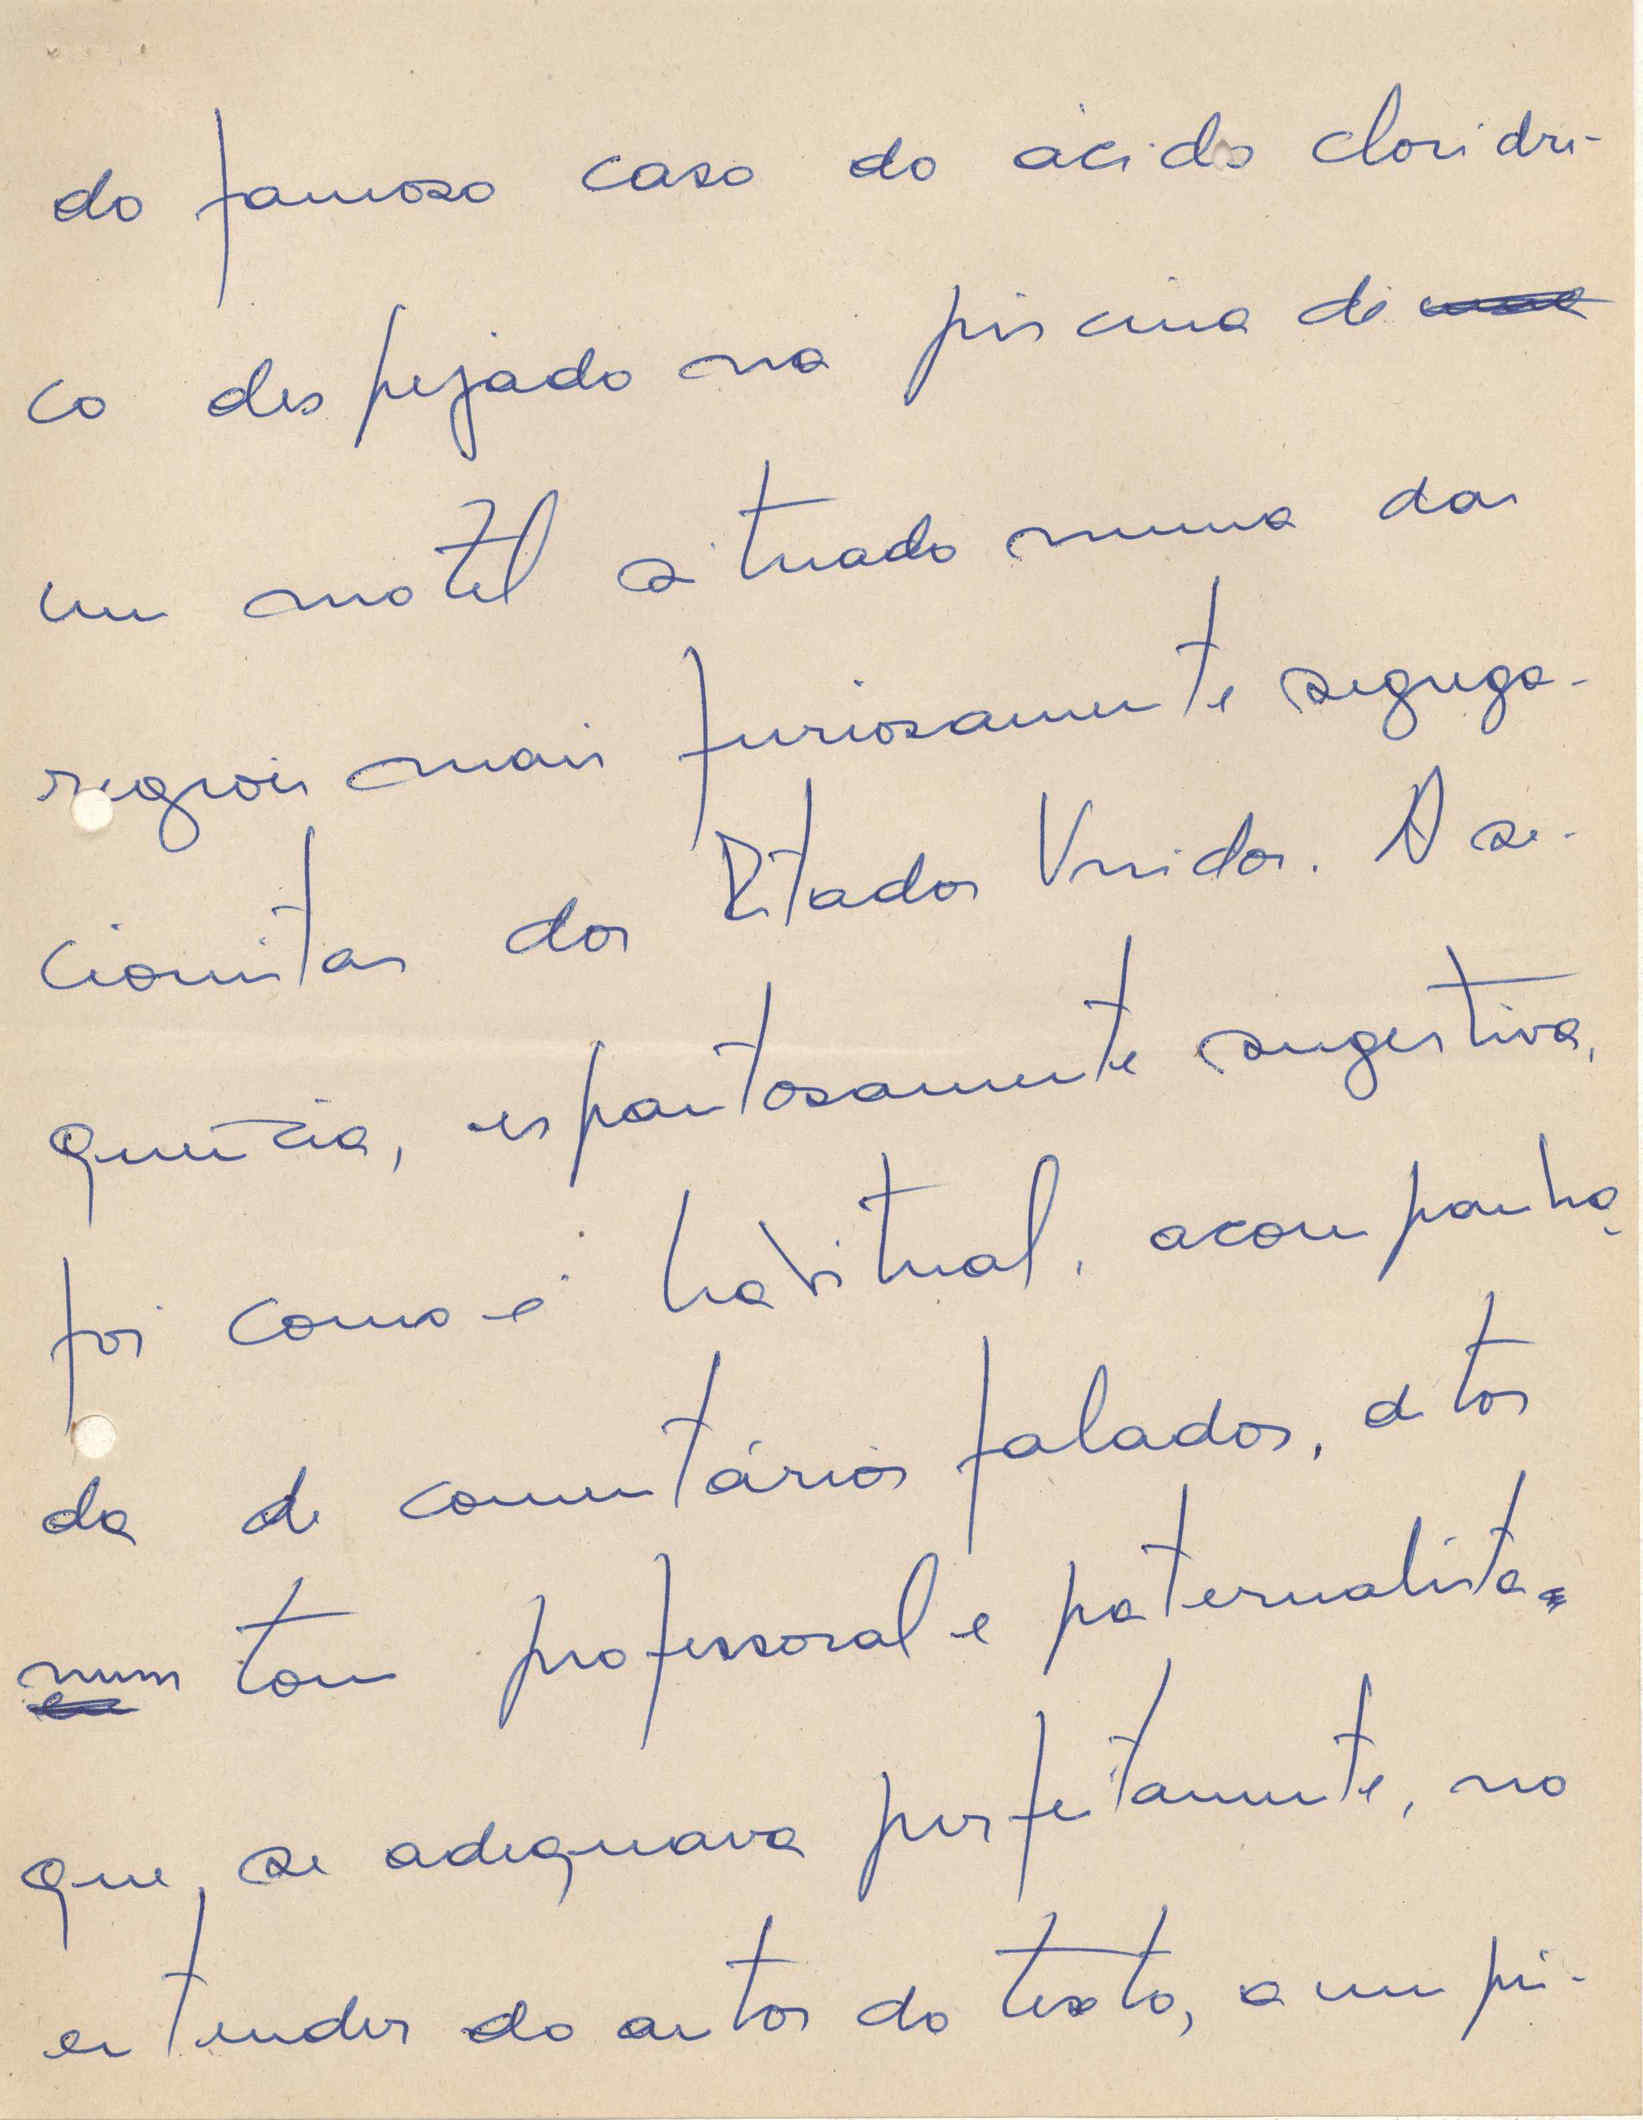 do famoso caso do ácido cloridri-
co despejado na piscina de
um motel situado numa das
regiois mais furiosamente segrega-
cionistas dos Estados Unidos. A se-
quência, espantosamente sugestiva,
foi como é habitual, acompanha-
da de comentários falados, ditos
num tom professoral e paternalista
que se adequava perfeitamente, no
entender do autor do texto, a um pú-